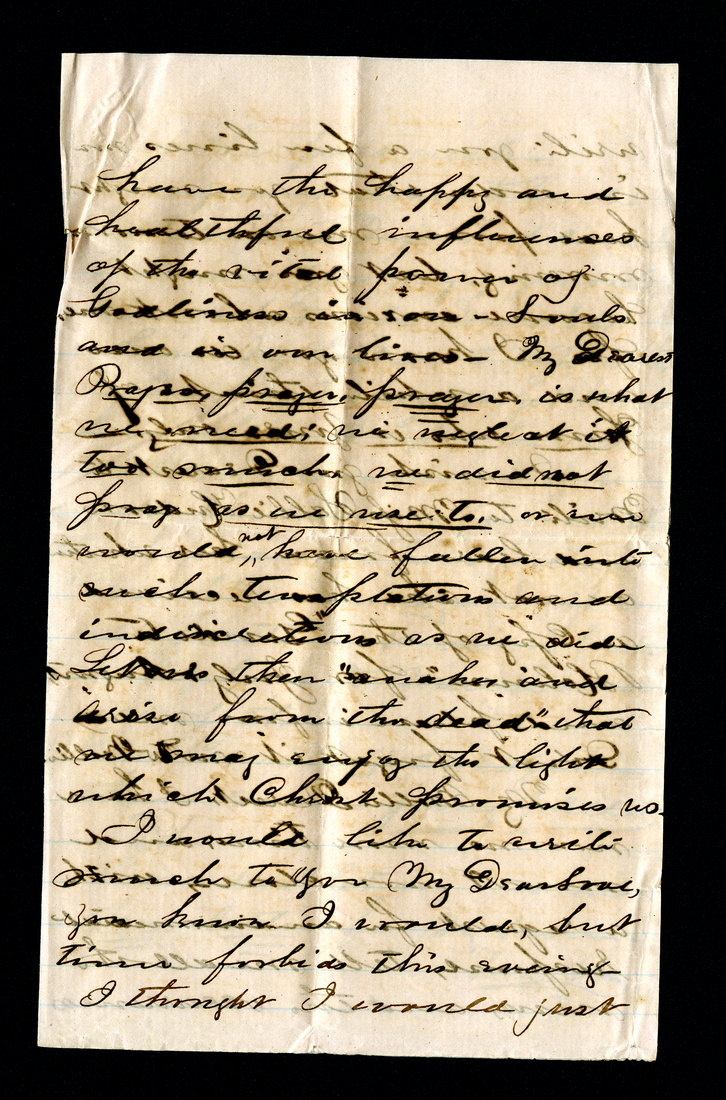 have the happy and
healthful influences
of the vital power of
Godliness in our Souls
and in our lives - My Dearest
prayer, prayer, is what
we need; we neglect it
too much. we did not
pray as we use to, or we
would not have fallen into
such temptations and
indiscretions as we did-
Let us then "awake and
arise from the dead" that
we may enjoy the light
which Christ promises us.
I would like to write
much to you My Dear Love,
you know I would, but
time forbids this evening
I thought I would just